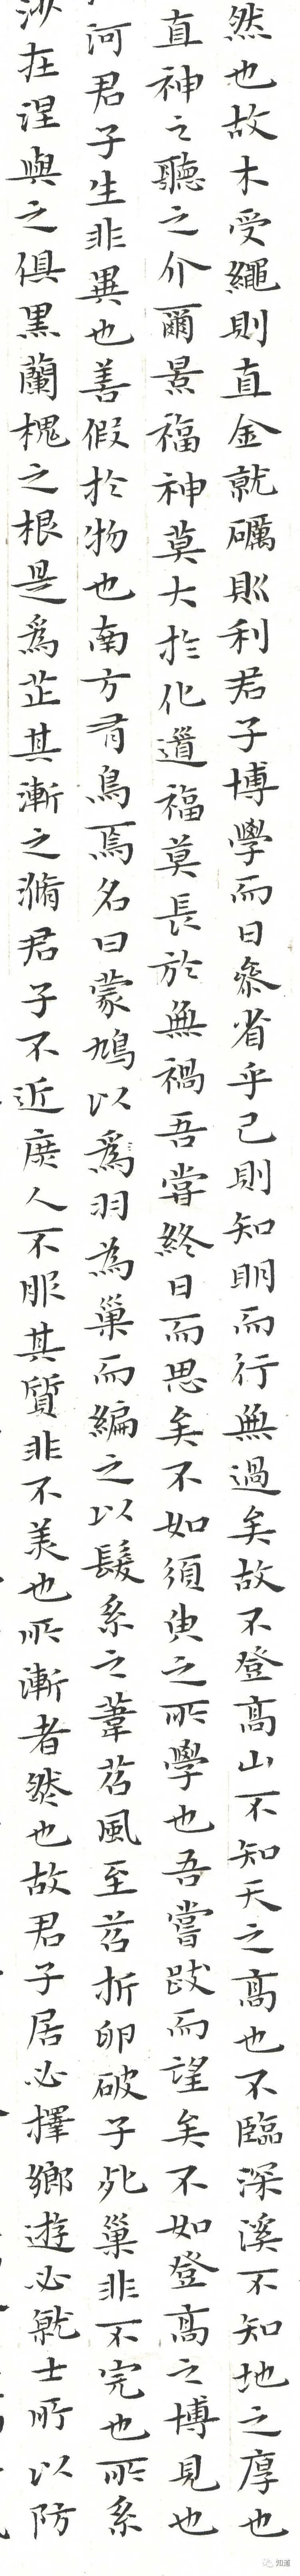 然也故木受繩則直金就礪則利君子博學而日參省乎己則知明而行無過矣故不登高山不知天之高也不臨深溪不知地之厚也
直神之聽之介爾景福神莫大於化道福莫長於無禍吾嘗終日而思矣不如須臾之所學也吾嘗跂而望矣不如登高之博見也
河君子生非異也善假於物也南方有鳥焉名曰蒙鳩以為羽為巢而編之以髮系之葦苕風至苕折卵破子死巢非不完也所系
沙在涅與之俱黑蘭槐之根是為芷其漸之滫君子不近庶人不服其質非不美也所漸者然也故君子居必擇鄉遊必就士所以防
知蒲